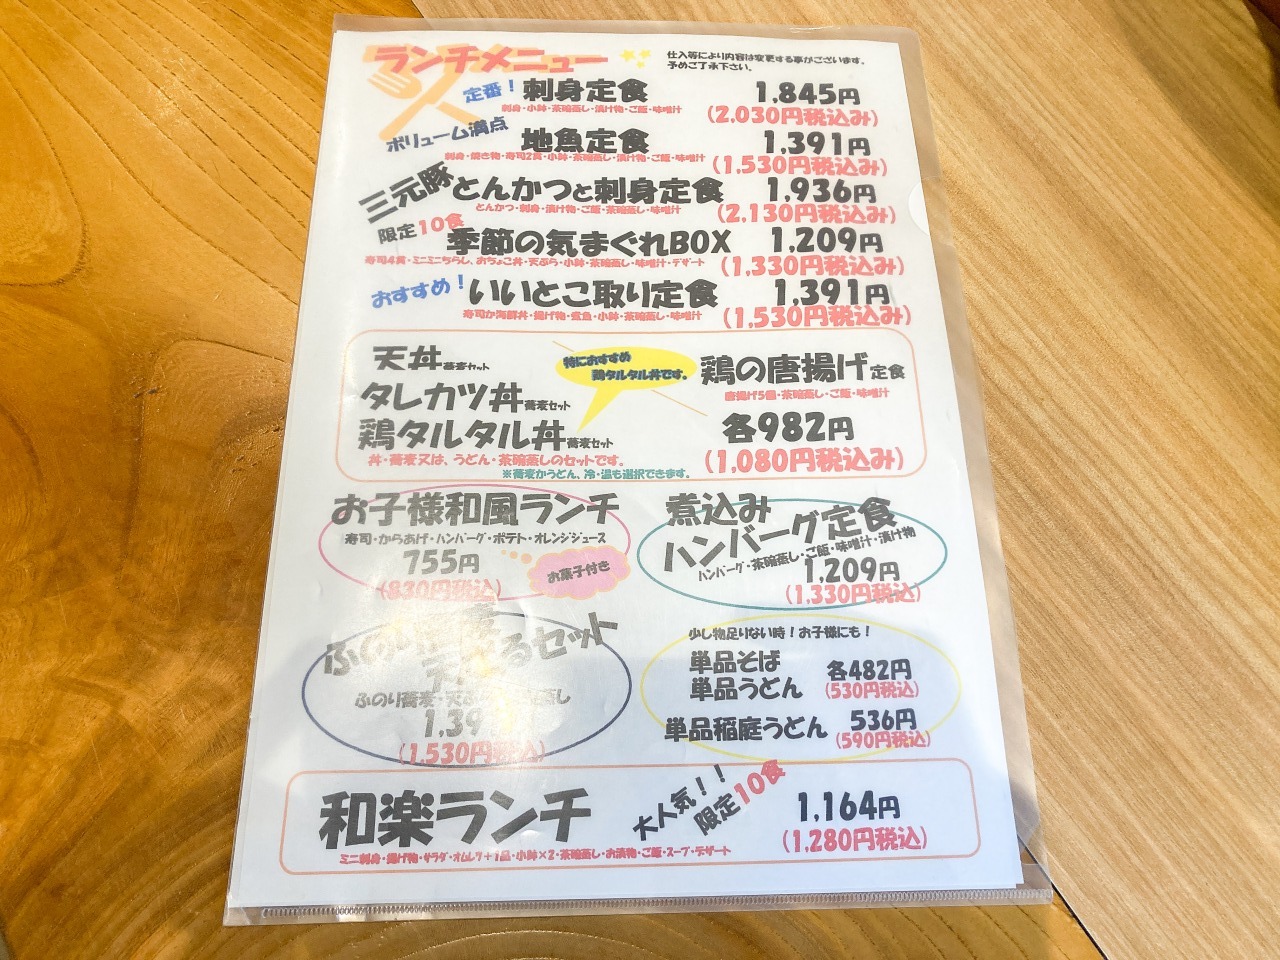 ランチメニュー
仕入等により内容は変更する事がございます。
予めご了承下さい。
定番! 刺身定食 1,845円
刺身・小鉢・茶碗蒸し・漬け物・ご飯・味噌汁 (2,030円税込み)
ボリューム満点 地魚定食 1,391円
刺身・焼き物・寿司2貫・小鉢・茶碗蒸し・漬け物・ご飯・味噌汁 (1,530円税込み)
三元豚とんかつと刺身定食 1,936円
とんかつ・刺身・漬け物・ご飯・茶碗蒸し・味噌汁 (2,130円税込み)
限定10食
季節の気まぐれBOX 1,209円
寿司4貫・ミニミニちらし、おちょこ丼・天ぷら・小鉢・茶碗蒸し・味噌汁・デザート (1,330円税込み)
おすすめ! いいとこ取り定食 1,391円
寿司か海鮮丼・揚げ物・煮魚・小鉢・茶碗蒸し・味噌汁 (1,530円税込み)
天丼蕎麦セット
タレカツ丼蕎麦セット
鶏タルタル丼蕎麦セット
丼・蕎麦又は、うどん・茶碗蒸しのセットです。
※蕎麦かうどん、冷・温も選択できます。
特におすすめ
鶏タルタル丼です。
鶏の唐揚げ定食
唐揚げ5個・茶碗蒸し・ご飯・味噌汁
各982円
(1,080円税込み)
お子様和風ランチ
寿司・からあげ・ハンバーグ・ポテト・オレンジジュース
755円
(830円税込)
お菓子付き
煮込み
ハンバーグ定食
ハンバーグ・茶碗蒸し・ご飯・味噌汁・漬け物
1,209円
(1,330円税込)
セット
ふのり蕎麦・天ぷ
1,39
(1,530円税込)
少し物足りない時!お子様にも!
単品そば
単品うどん
各482円
(530円税込)
単品稲庭うどん 536円
(590円税込)
和楽ランチ
大人気!!
限定10食
1,164円
(1,280円税込)
ミニ刺身・揚げ物・サラダ・オムレツ+1品・小鉢×2・茶碗蒸し・お漬物・ご飯・スープ・デザート